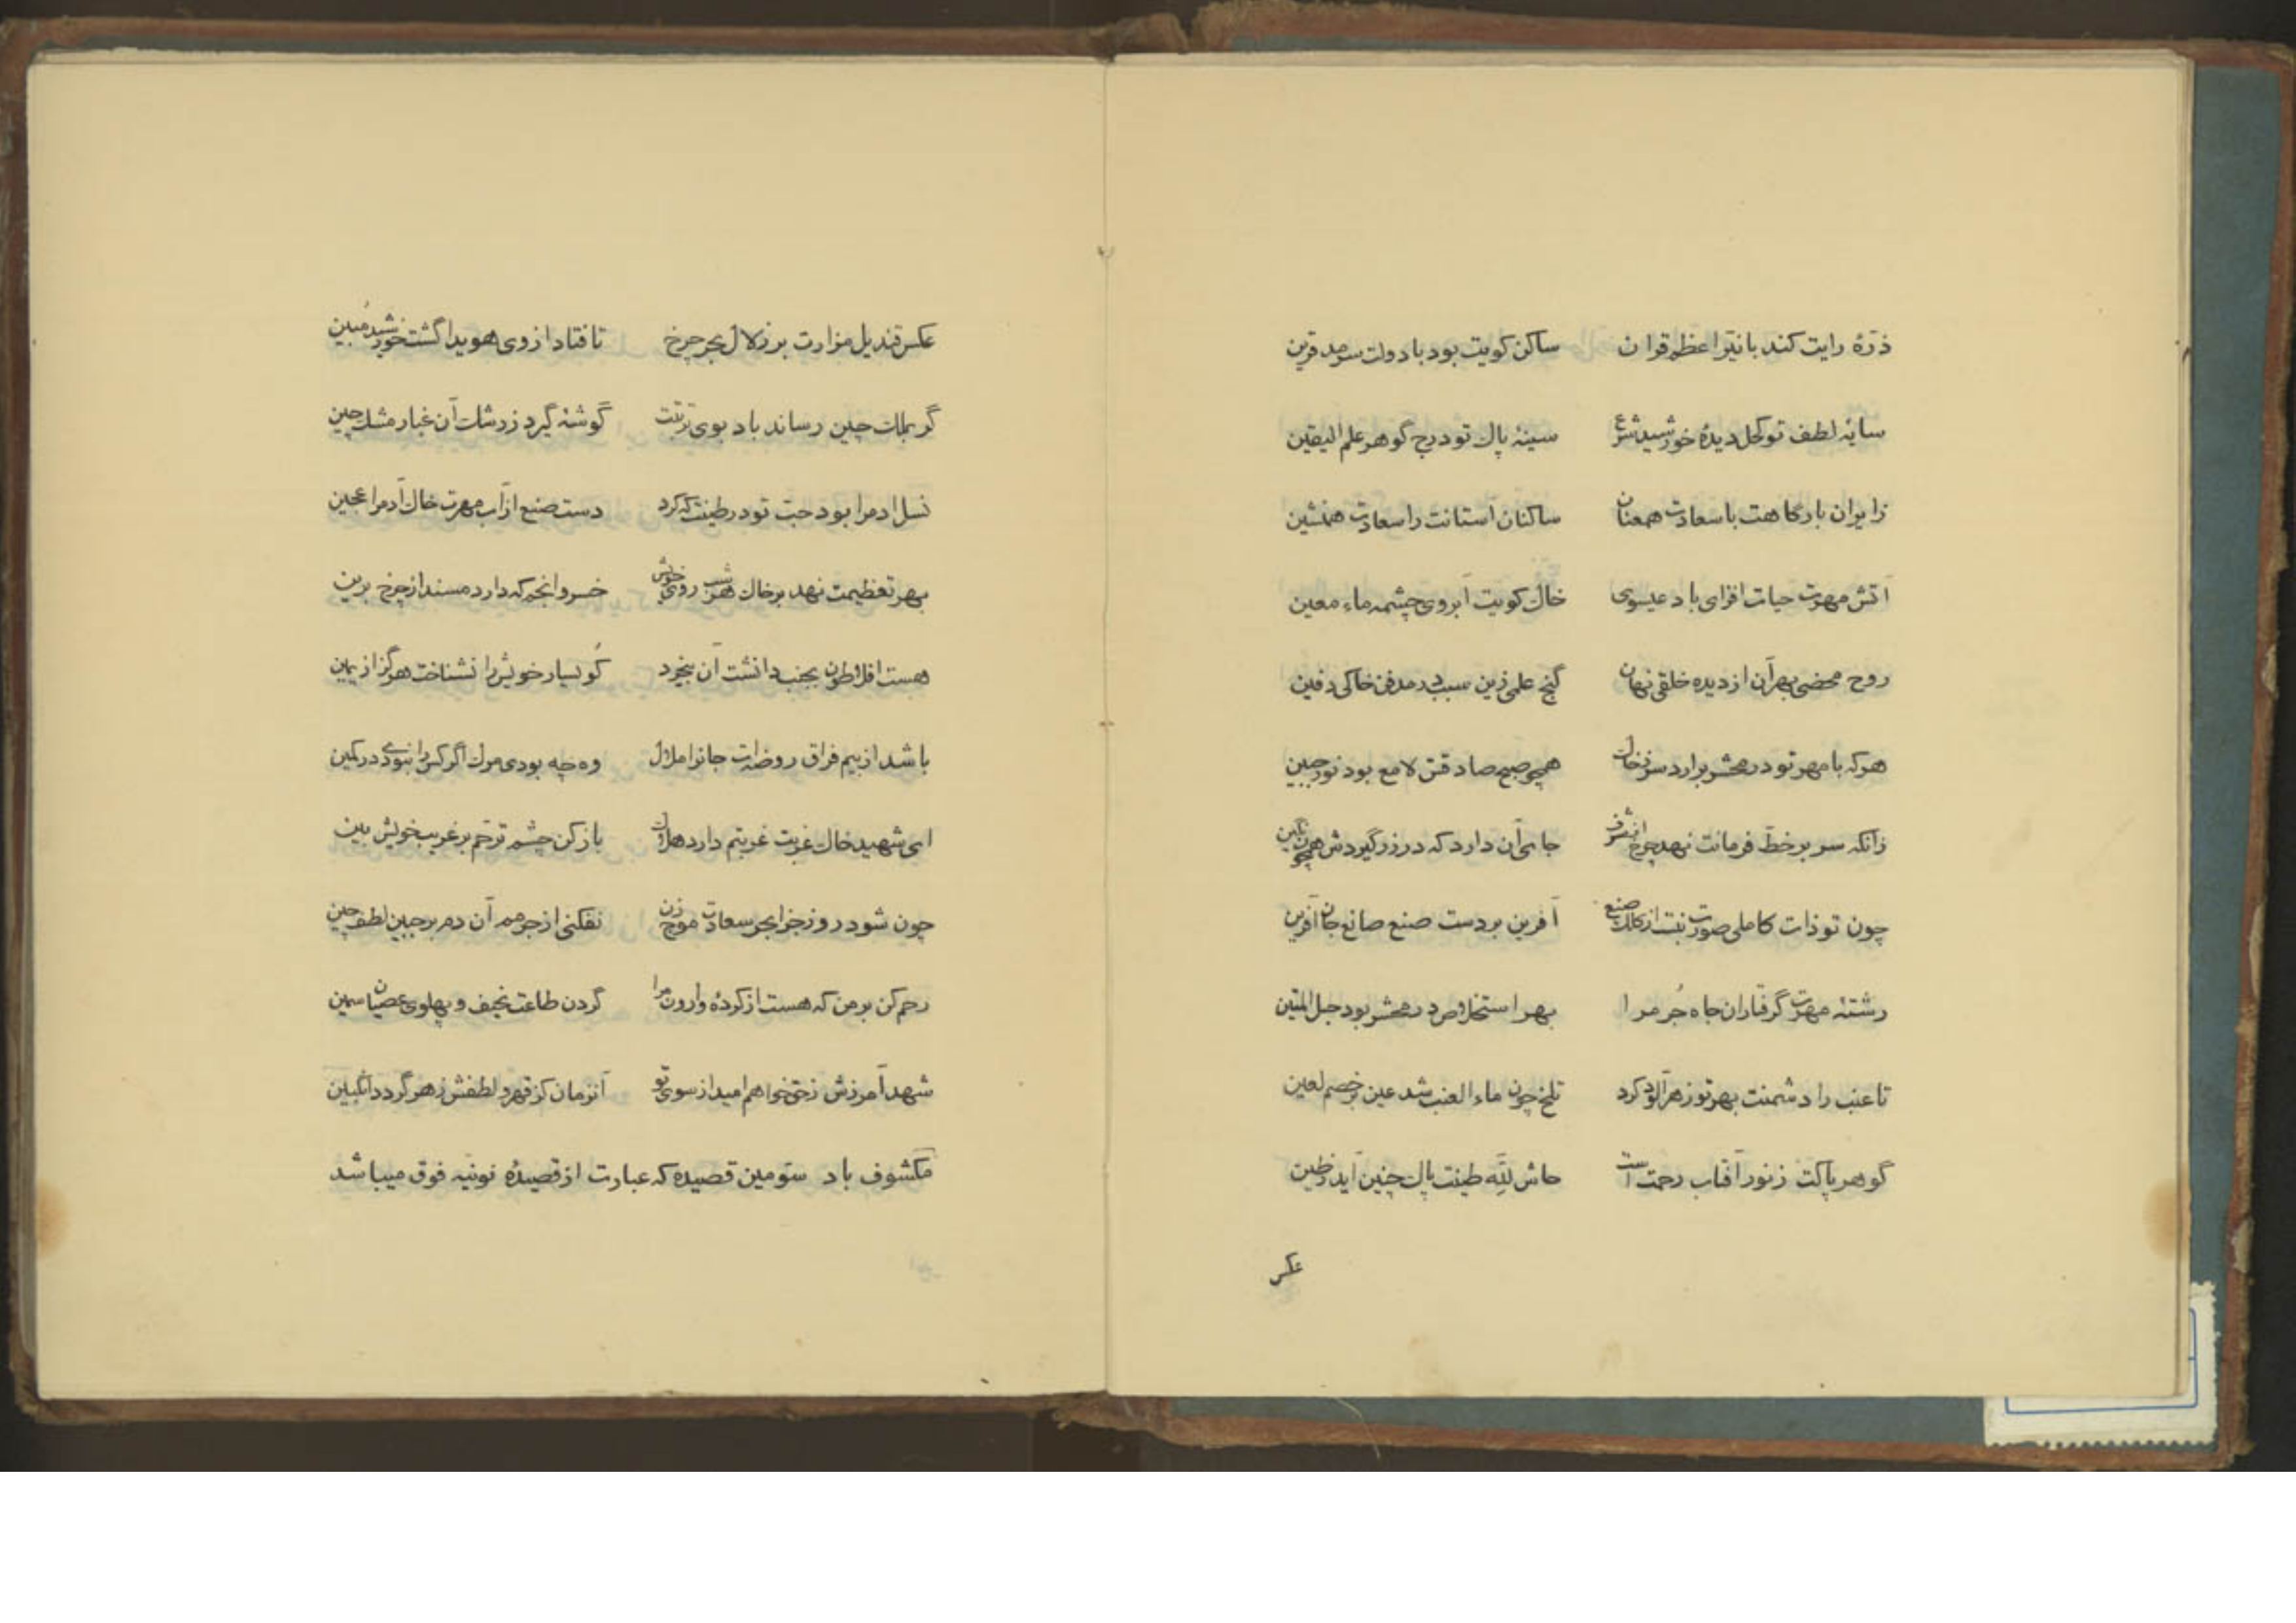 ذرّهٔ رایت کند با نیّر اعظم قران ساکن کویت بود با دولت سرمد قرین
سایهٔ لطف تو کحل دیدهٔ خورشید شرع سینهٔ پاک تو درج گوهر علم الیقین
زایران بارگاهت با سعادت همعنان ساکنان آستانت را سعادت همنشین
آتش مهرت حیات افزای باد عیسوی خاک کویت آبروی چشمه ماء معین
روح محضی بهر آن از دیده خلقی نهان گنج علمی زین سبب در مدفن خاکی دفین
هرکه با مهر تو در محشر برارد سر ز خاک همچو صبح صادقش لامع بود نور جبین
زانکه سر بر خطّ فرمانت نهد چرخ از شرف جای آن دارد که در زر گیردش همچون نگین
چون تو ذات کاملی صورت نبست از کلک صنع آفرین بر دست صنع صانع جان آفرین
رشتهٔ مهرت گرفتاران چاه جُرم را بهر استخلاص در محشر بود حبل المتین
تا عنب را دشمنت بهر تو زهرآلود کرد تلخ چون ماء العنب شد عین بر خصم لعین
گوهر پاکت ز نور آفتاب رحمت است حاش للّه طینت پاک چنین آید ز طین
عکس
عکس قندیل مزارت بر زلال بحر چرخ تا فتاد از وی هویدا گشت خورشید مُبین
گر بملک چین رساند باد بوی تربتت گوشه گیرد ز رشک آن غبار مشک چین
نسل ادمرا بود حبّ تو در طینت که کرد دست صنع از آب مهرت خاک آدمرا عجین
بهر تعظیمت نهد بر خاک هر شب روی خویش خسرو انجم که دارد مسند از چرخ برین
هست افلاطون بجنب دانشت آن بیخرد کو یسار خویش را نشناخت هرگز از یمین
باشد از بیم فراق روضه‌ات جانرا ملال وه چه بودی مرک اگر کس را نبودی در کمین
ای شهید خاک غربت غربتم دارد هلاک باز کن چشم ترحّم بر غریب خویش بین
چون شود روز جزا بحر سعادت موج زن نفکنی از جرمم آن دم بر جبین لطف چین
رحم کن بر من که هست از کردهٔ وارون مرا گردن طاعت نحیف و پهلوی عصیان سمین
شهد آمرزش ز حق خواهم امید از سوی تو آنزمان کز قهر و لطفش زهر گردد انگبین
مکشوف باد سوّمین قصیده که عبارت از قصیدهٔ نونیّه فوق میباشد